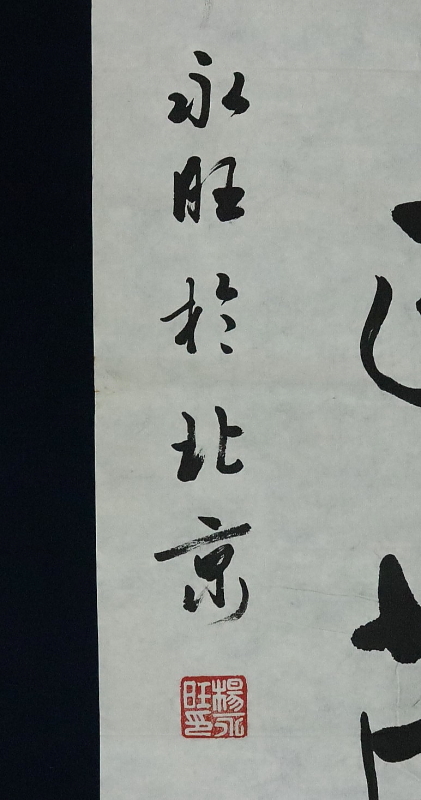 永旺於北京
楊永旺印